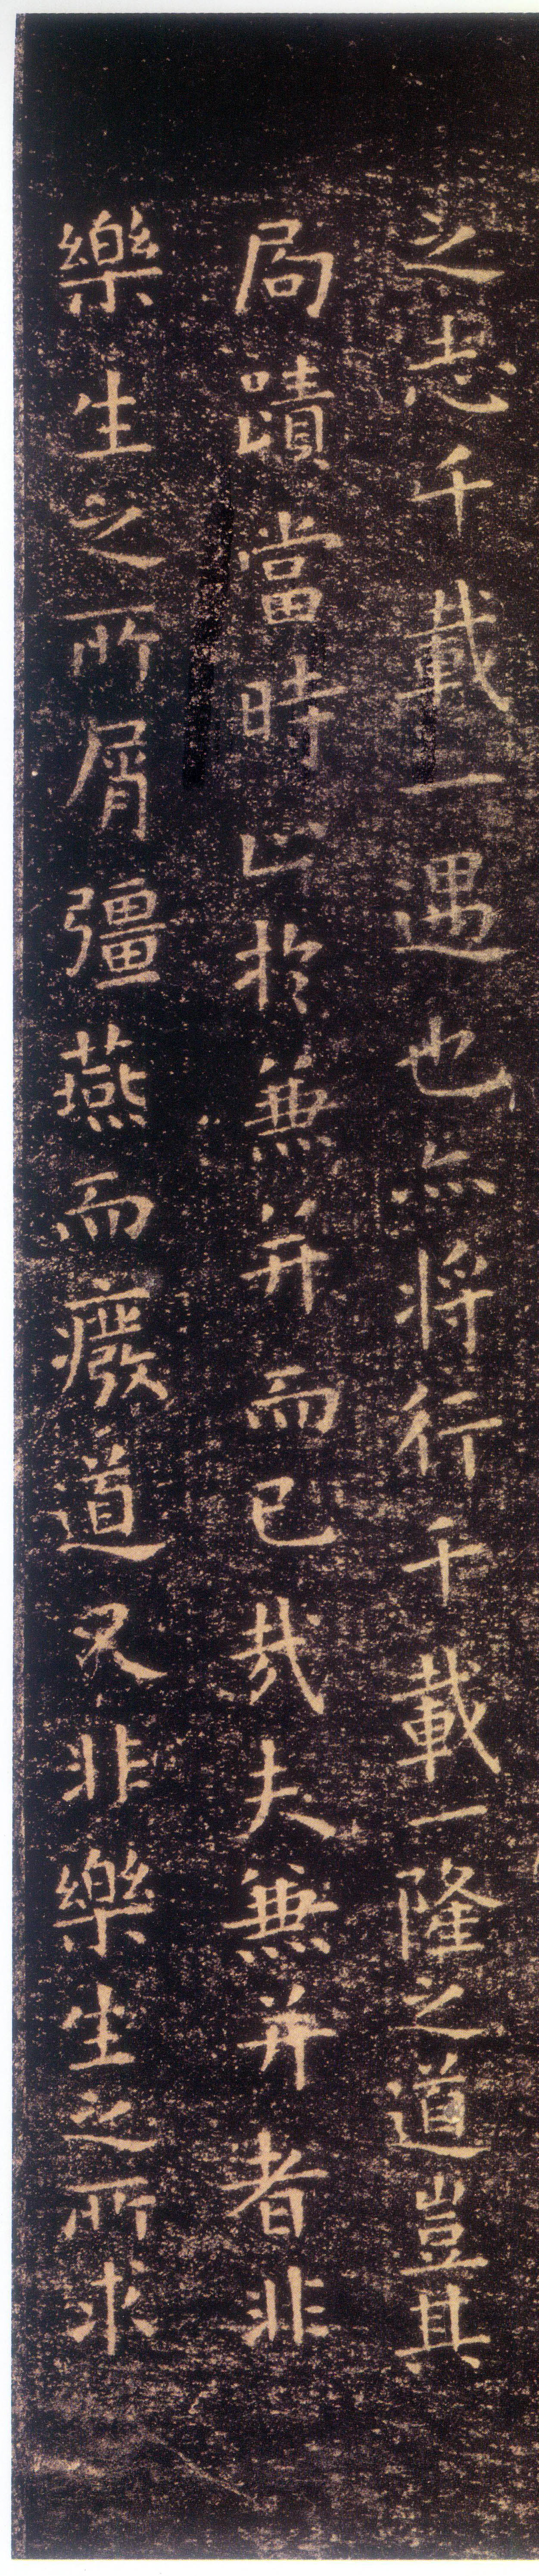 之志千載一遇也亦将行千載一隆之道豈其
局蹟當時止於兼并而已哉夫兼并者非
樂生之所屑彊燕而癈道又非樂生之所求